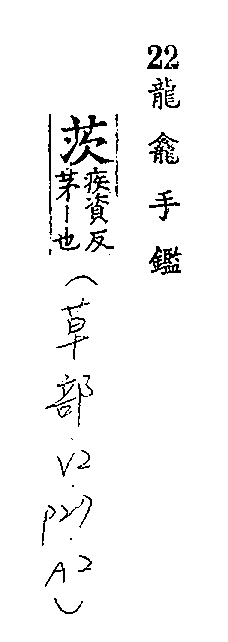 22龍龕手鑑
茨疾資反茅｜也
(草部.V2.P27.A2)